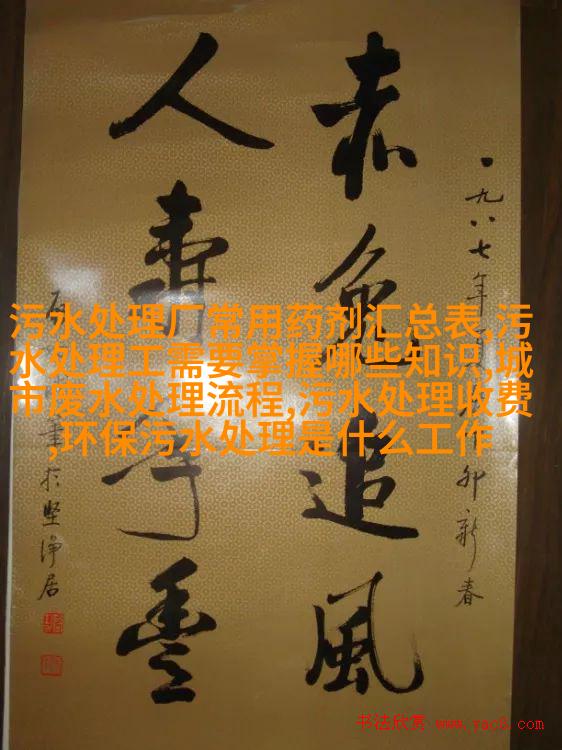 一九八七年
卯新春
赤兔追風
人壽年豐
於堅淨居
污水处理厂常用药剂汇总表,污
水处理工需要掌握哪些知识,城
市废水处理流程,污水处理收费
,环保污水处理是什么工作
书法欣赏 www.yac8.com